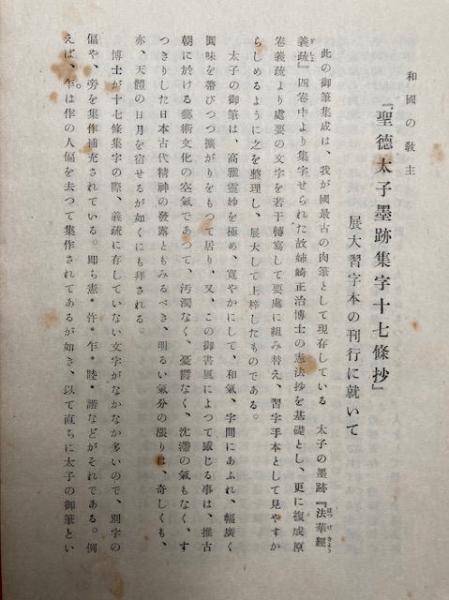 和國の敎主
『聖德太子墨跡集字十七條抄』
展大習字本の刊行に就いて
此の御筆集成は、我が國最古の肉筆として現存している 太子の墨跡『法華經
義疏』四卷中より集字せられた故姉崎正治博士の憲法抄を基礎とし、更に複成原
卷義疏より處要の文字を若干轉寫して要處に組み替え、習字手本として見やすか
らしめるように之を整理し、展大して上梓したものである。
太子の御筆は、高雅靈妙を極め、寬やかにして、和氣、字間にあふれ、幅廣く
興味を帶びつつ擴がりをもつて居り、又、この御書風によつて感じる事は、推古
朝に於ける藝術文化の空氣であつて、汚濁なく、憂鬱なく、沈滯の氣もなく、す
つきりした日本古代精神の發露ともみるべき、明るい氣分の漲りは、奇しくも、
亦、天體の日月を宿せるが如くにも拜される。
博士が十七條集字の際、義疏に存していない文字がなかなか多いので、別字の
偏や、旁を集作補充されている。卽ち憲・許・乍・睦・諧などがそれである。例
えば、乍は作の人偏を去つて集作されてあるが如き、以て直ちに太子の御筆とい